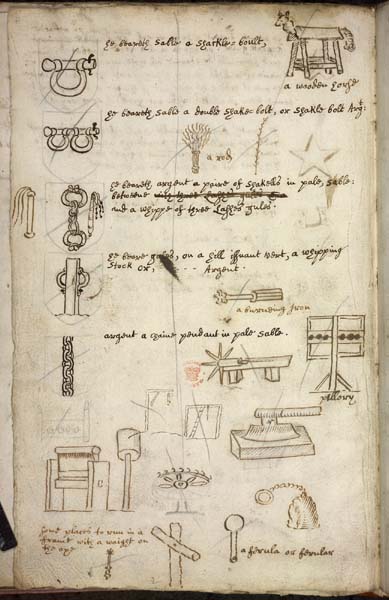 he beareth Sable a shackle-boult,
a wooden horse
he beareth Sable a double shake-bolt, or shakle bolt Arg:
a rod
he beareth argent a paire of shakells in pale, Sable:
betweene
and a whippe of three Lashes gules.
he beare gules, on a hill issuant Vert, a whipping
Stock or, - - - Argent.
a burning Iron
argent a chaine pendant in pale Sable.
pillory
C
some places to run in a
frame with a waight on
the axe
a ferula or ferular